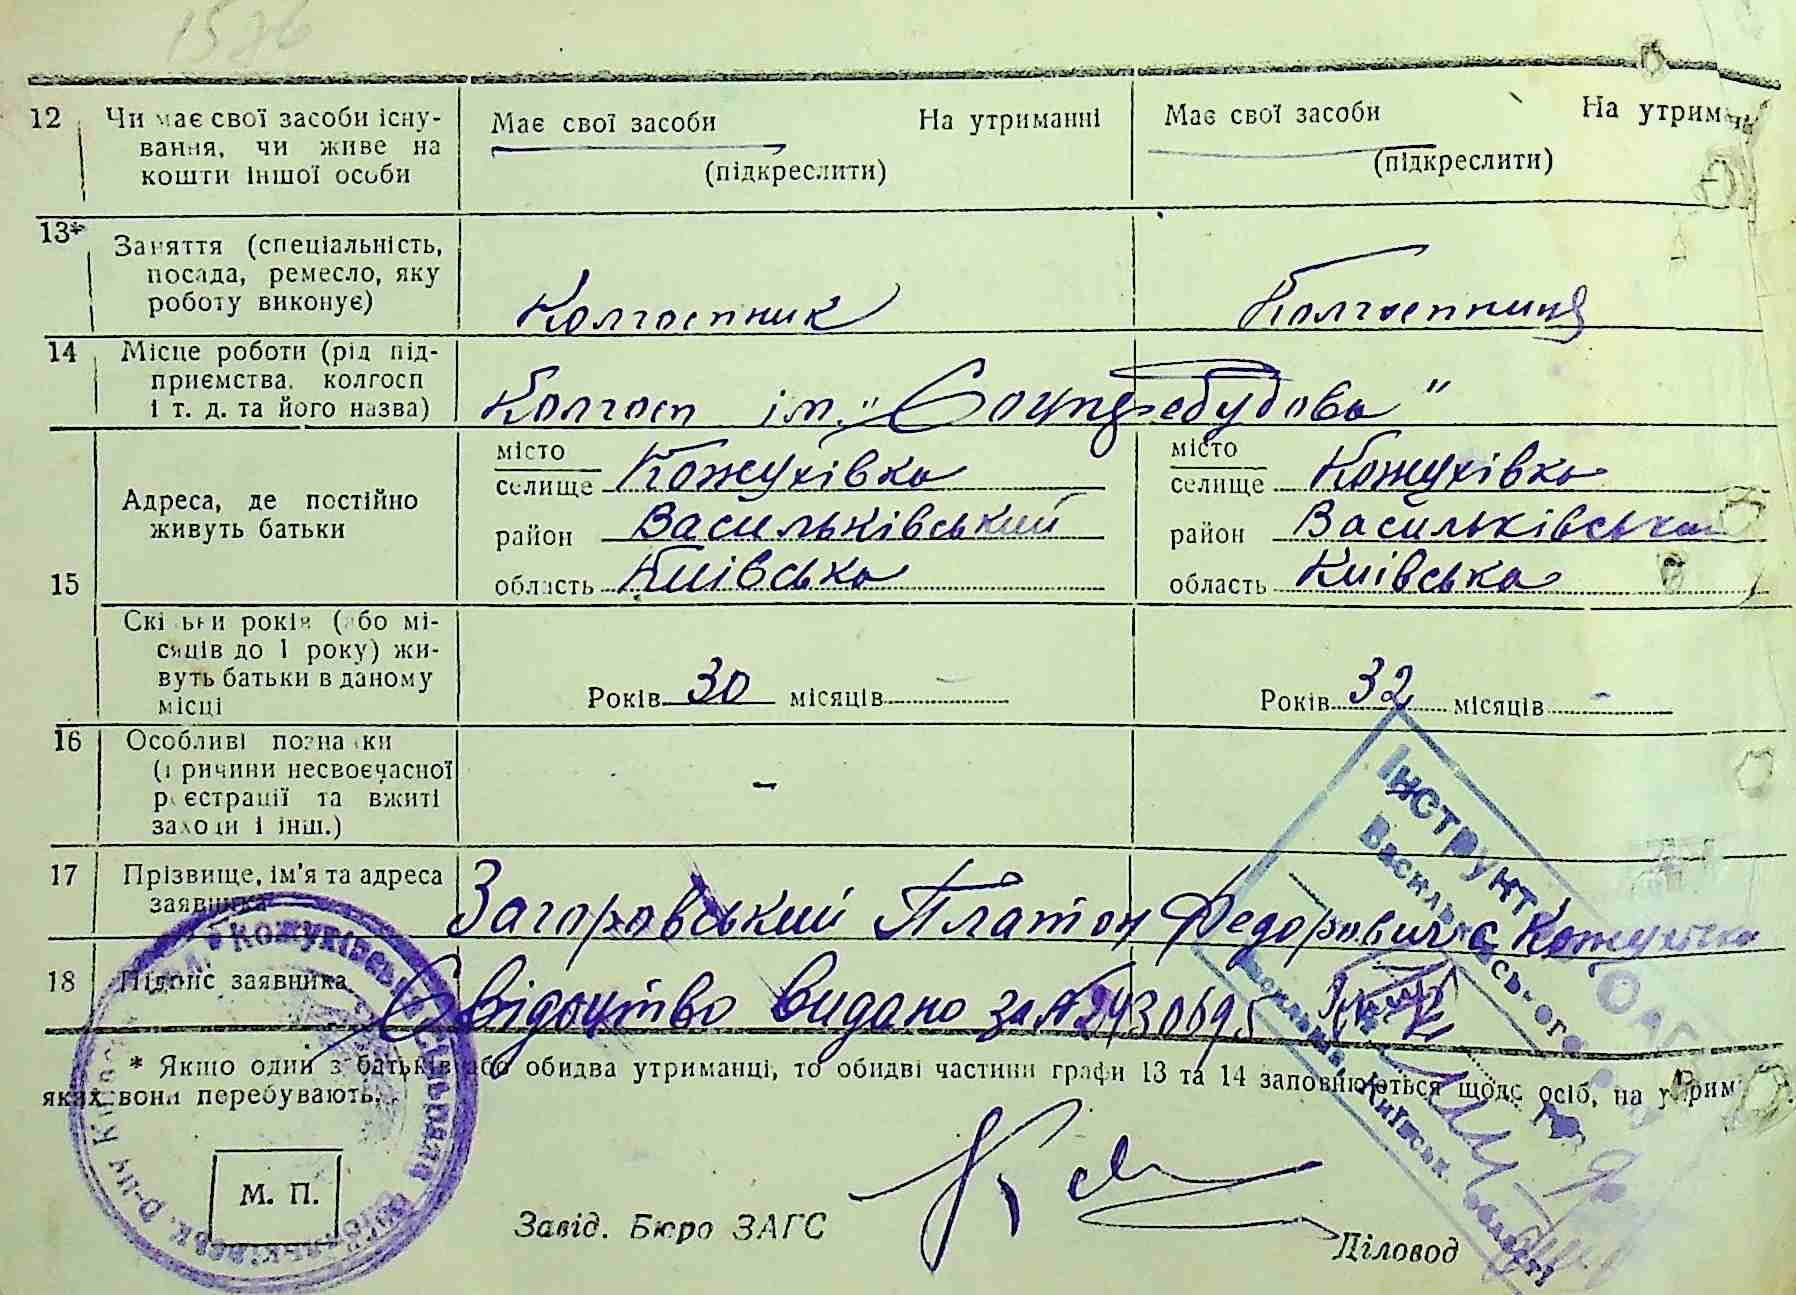 1576
12 Чи має свої засоби існу- Має свої засоби На утриманні Має свої засоби На утриманні
вання, чи живе на (підкреслити) (підкреслити)
кошти іншої особи
13* Заняття (спеціальність,
посада, ремесло, яку
роботу виконує) Колгоспник Колгоспниця
14 Місце роботи (рід під-
приємства, колгосп
і т. д. та його назва) Колгосп ім. "Соцперебудова"
15 Адреса, де постійно
живуть батьки
місто місто
селище Кожухівка селище Кожухівка
район Васильківський район Васильківський
область Київська область Київська
Скільки років (або мі-
сяців до 1 року) жи-
вуть батьки в даному
місці Років 30 місяців - Років 32 місяців -
16 Особливі познаки
(причини несвоєчасної
реєстрації та вжиті -
заходи і інш.)
17 Прізвище, ім'я та адреса
заявника Загоровський Платон Федорович с Кожухівка
18 Підпис заявника
Свідоцтво видано за № 2430695
* Якщо один з батьків або обидва утриманці, то обидві частини графи 13 та 14 заповнюються щодо осіб, на утрим
яких вони перебувають.
М. П.
Завід. Бюро ЗАГС
Діловод
Кожухівська Сільська
Інструкт
Васильківського